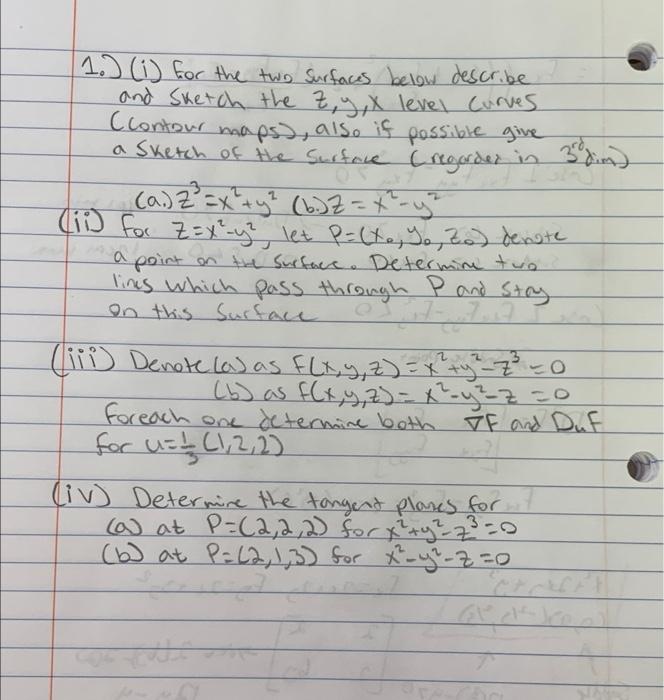 1.) (i) For the two surfaces below describe
and sketch the z, y, x level curves
(contour maps), also if possible give
a sketch of the surface (regarder in 3rd dim)
(a.) z³ = x² + y² (b.) z = x² - y²
(ii) For z = x² - y², let P = (x₀, y₀, z₀) denote
a point on the surface. Determine two
lines which pass through P and stay
on this surface
(iii) Denote (a) as F(x, y, z) = x² + y² - z³ = 0
(b) as f(x, y, z) = x² - y² - z = 0
For each one determine both ∇F and DuF
for u = 1/3 (1, 2, 2)
(iv) Determine the tangent planes for
(a) at P = (2, 2, 2) for x² + y² - z³ = 0
(b) at P = (2, 1, 3) for x² - y² - z = 0